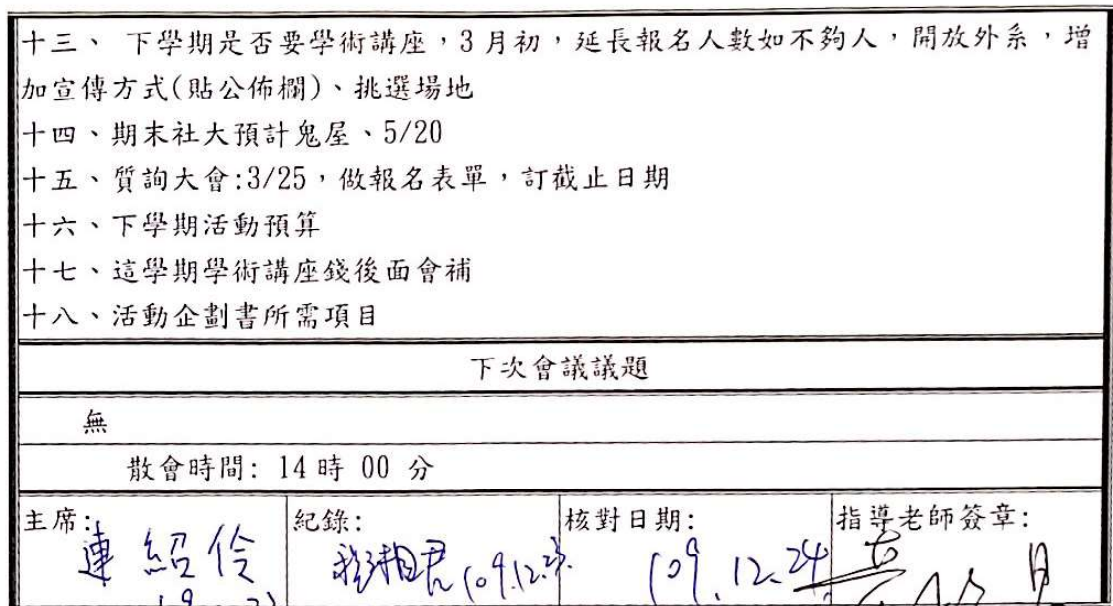 十三、 下學期是否要學術講座，3 月初，延長報名人數如不夠人，開放外系，增
加宣傳方式(貼公佈欄)、挑選場地
十四、期末社大預計鬼屋、5/20
十五、質詢大會:3/25，做報名表單，訂截止日期
十六、下學期活動預算
十七、這學期學術講座錢後面會補
十八、活動企劃書所需項目
下次會議議題
無
散會時間: 14 時 00 分
主席: 紀錄: 核對日期: 指導老師簽章:
連紹伶 109.12.24